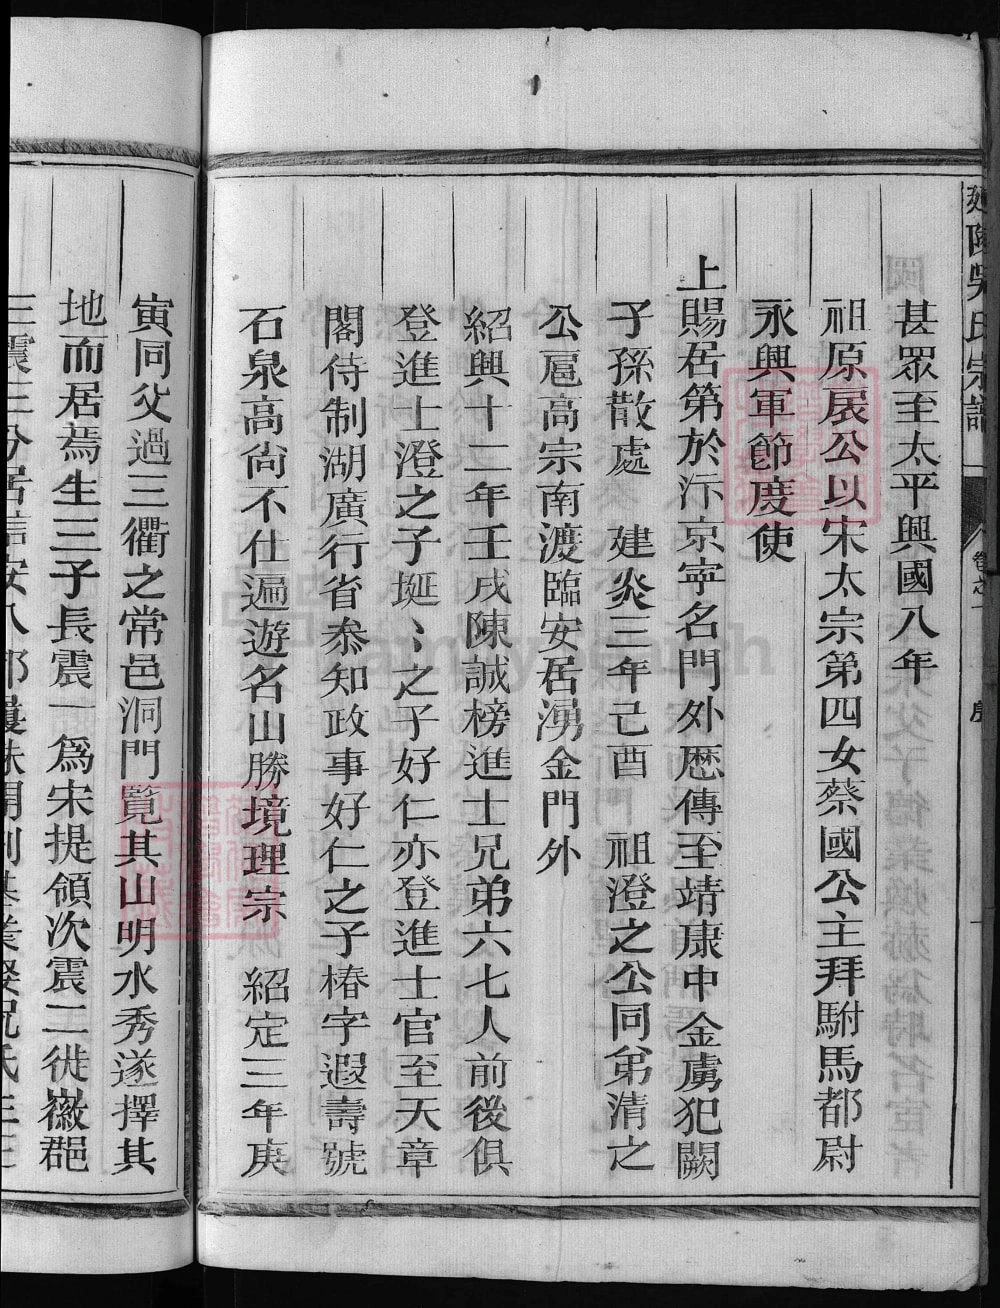 甚眾至太平興國八年
祖原展公以宋太宗第四女蔡國公主拜駙馬都尉
永興軍節度使
上賜居第於汴京寧名門外歷傳至靖康中金虜犯闕
子孫散處　建炎三年己酉　祖澄之公同弟清之
公扈高宗南渡臨安居湧金門外
紹興十二年壬戌陳誠榜進士兄弟六七人前後俱
登進士澄之子埏〻之子好仁亦登進士官至天章
閣待制湖廣行省叅知政事好仁之子椿字遐壽號
石泉高尙不仕遍遊名山勝境理宗　紹定三年庚
寅同父過三衢之常邑洞門覽其山明水秀遂擇其
地而居焉生三子長震一爲宋提領次震二徙嚴郡
三震三分居信安八都
延陵吳氏宗譜
卷之一